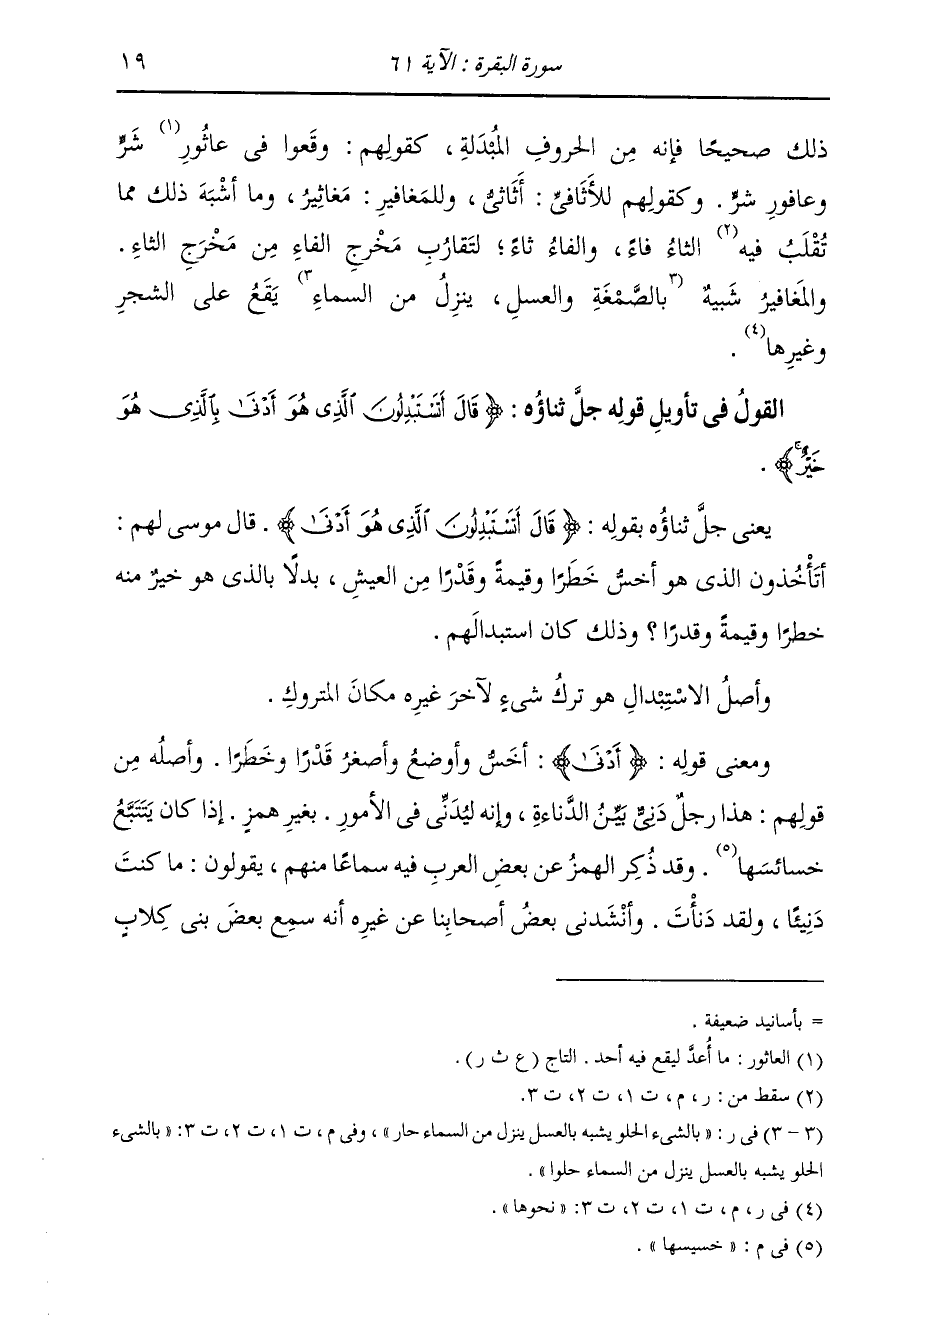 سورة البقرة : الآية ٦١
١٩
ذلك صحيحًا فإنه مِن الحروفِ المُبْدَلةِ ، كقولِهم : وقَعوا فى عاثُورِ(١) شَرٍّ
وعافورِ شرٍّ . وكقولِهم للأَثَافىِّ : أَثَاثىُّ ، وللمَغافيرِ : مَغاثِيرُ ، وما أشْبَهَ ذلك مما
تُقْلَبُ فيه(٢) الثاءُ فاءً ، والفاءُ ثاءً ؛ لتقارُبِ مَخْرجِ الفاءِ مِن مَخْرَجِ الثاءِ .
والمَغافيرُ شَبيهٌ (٣بالصَّمْغَةِ والعسلِ ، ينزِلُ من السماءِ٣) يَقَعُ على الشجرِ
وغيرِها(٤) .
القولُ فى تأويلِ قولِه جلَّ ثناؤُه : ﴿ قَالَ أَتَسْتَبْدِلُونَ ٱلَّذِى هُوَ أَدْنَىٰ بِٱلَّذِى هُوَ
خَيْرٌۚ ﴾ .
يعنى جلَّ ثناؤُه بقولِه : ﴿ قَالَ أَتَسْتَبْدِلُونَ ٱلَّذِى هُوَ أَدْنَىٰ ﴾ . قال موسى لهم :
أتَأْخُذون الذى هو أخسُّ خَطَرًا وقيمةً وقَدْرًا مِن العيشِ ، بدلًا بالذى هو خيرٌ منه
خطرًا وقيمةً وقدرًا ؟ وذلك كان استبدالَهم .
وأصلُ الاسْتِبْدالِ هو تركُ شىءٍ لآخرَ غيرِه مكانَ المتروكِ .
ومعنى قولِه : ﴿ أَدْنَىٰ ﴾ : أخَسُّ وأوضعُ وأصغرُ قَدْرًا وخَطَرًا . وأصلُه مِن
قولِهم : هذا رجلٌ دَنِىٌّ بَيِّنُ الدَّناءةِ ، وإنه ليُدَنِّى فى الأمورِ . بغيرِ همزٍ . إذا كان يَتَتَبَّعُ
خسائسَها(٥) . وقد ذُكِر الهمزُ عن بعضِ العربِ فيه سماعًا منهم ، يقولون : ما كنتَ
دَنِيئًا ، ولقد دَنأْتَ . وأنْشَدنى بعضُ أصحابِنا عن غيرِه أنه سمِع بعضَ بنى كِلابٍ
= بأسانيد ضعيفة .
(١) العاثور : ما أُعدَّ ليقع فيه أحد . التاج (ع ث ر) .
(٢) سقط من : ر ، م ، ت ١، ت ٢، ت ٣.
(٣ - ٣) فى ر : « بالشىء الحلو يشبه بالعسل ينزل من السماء حار » ، وفى م ، ت ١، ت ٢، ت ٣: « بالشىء
الحلو يشبه بالعسل ينزل من السماء حلوا » .
(٤) فى ر ، م ، ت ١، ت ٢، ت ٣: « نحوها » .
(٥) فى م : « خسيسها » .